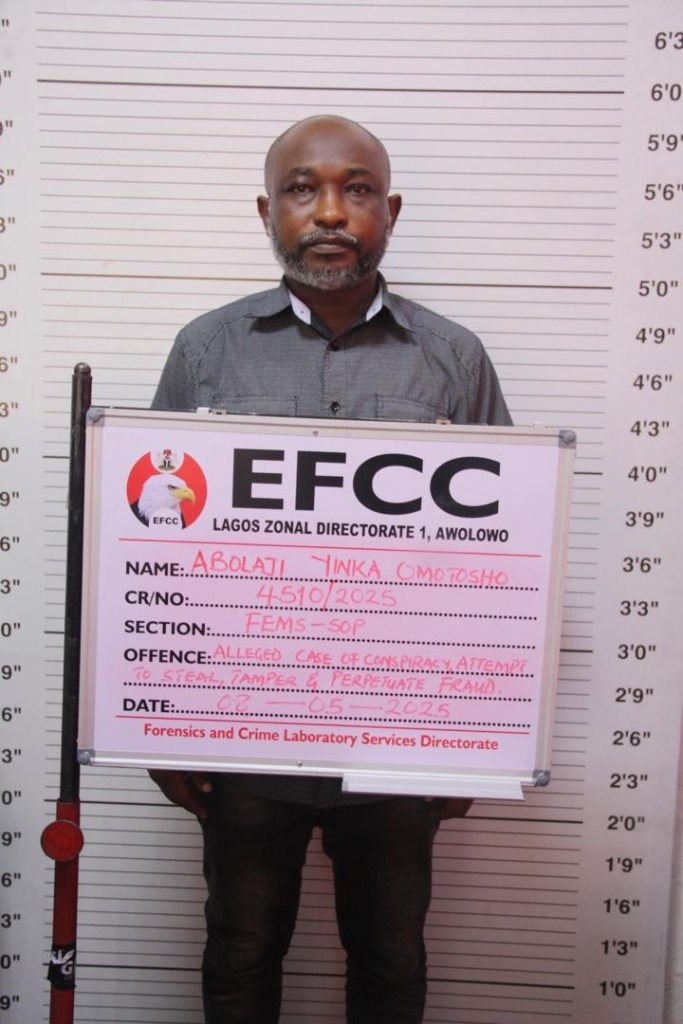 6'3
6'0
5'9
5'6"
5'3"
5'0"
4'9"
4'6"
4'3"
4'0"
3'9"
3'6"
3'3"
3'0"
2'9"
2'6"
2'3"
2'0"
1'9"
1'6"
1'3"
1'0"
EFCC
EFCC
LAGOS ZONAL DIRECTORATE 1, AWOLOWO
NAME: ABOLAJI YINKA OMOTOSHO
CR/NO: 4510/2025
SECTION: FEMS-SOP
OFFENCE: ALLEGED CASE OF CONSPIRACY, ATTEMPT
TO STEAL, TAMPER & PERPETUATE FRAUD.
DATE: 08-05-2025
Forensics and Crime Laboratory Services Directorate